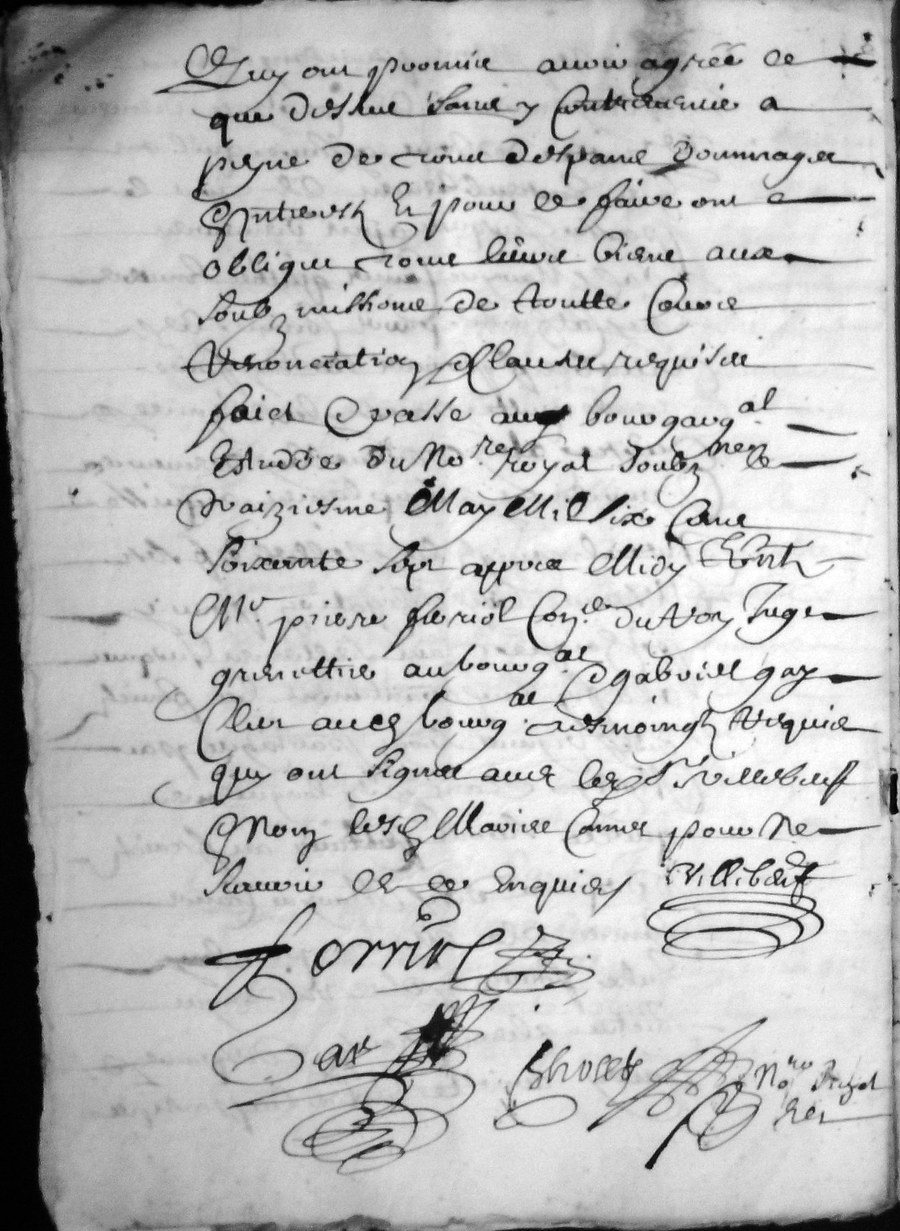 Quy ont promis avoir agreé ce
que dessus sans y contrevenir a
peyne de tous despans dommages
Interestz Et pour ce faire ont
obligue tous leurs biens aux
soubzmissions de toutte Cours
Renonciation Clauses requises
faict passe aud bourgargal
Estude du Nore royal soubzne le
traiziesme May Mil six Cens
soixante sept appres Midy Ent
Mr. piere feriol Conler du Roy Juge
grenettier au bourgal Gabriel gay
Clerc aud bourgal tesmoingtz Requis
quy ont signés avec led Sr villebeuf
Non lesd Maries Comes pour ne
scavoir de ce Enquis Villebeuf
ferriol
Gay
Nore Royal